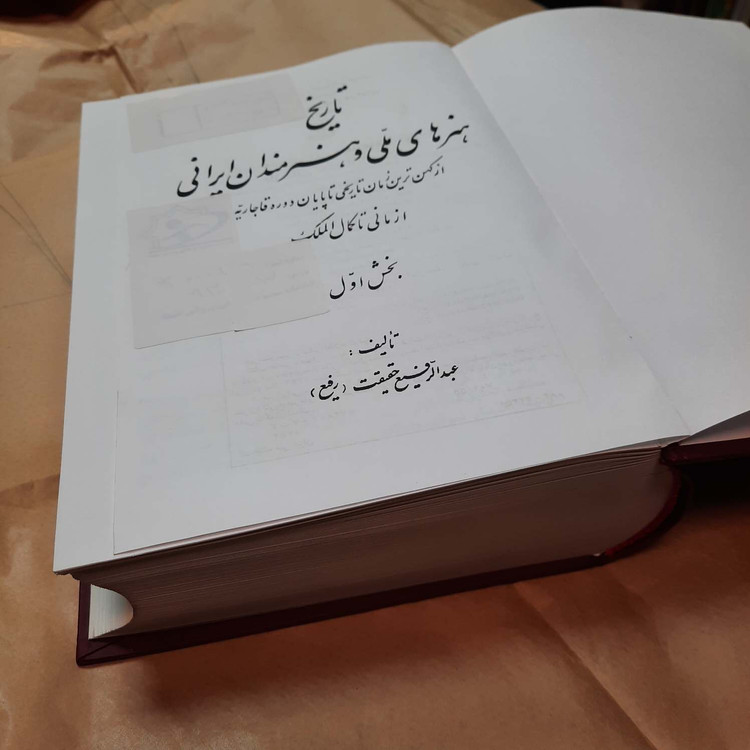 تاریخ
هنرهای ملّی و هنرمندان ایرانی
از کهن ترین زمان تاریخی تا پایان دوره قاجاریّه
از مانی تا کمال الملک
بخش اوّل
تألیف :
عبدالرّفیع حقیقت (رفیع)